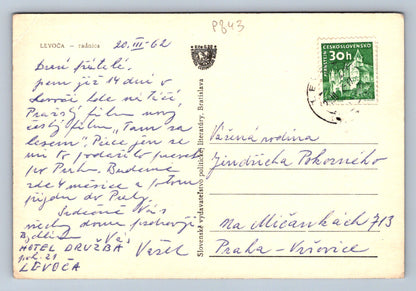 P843
LEVOČA – radnica
20. III – 62
Drazí přátelé,
jsem již 14 dní v
Levoči kde natáčí
Pražský film nový
český film „Tam za
lesem". Přece jen se
mi to podařilo
pro Budeme
zde 4 měsíce a potom
přijdu do Prahy.
Srdečně Vás
všechny doma
Bydlím Váš
HOTEL DRUŽBA Vašek
pok. 21
LEVOČA
Slovenské vydavateľstvo politickej literatúry, Bratislava
ČESKOSLOVENSKO
30h
Vážená rodina
Jindřicha Pokorného
Na Mičánkách 713
Praha – Vršovice